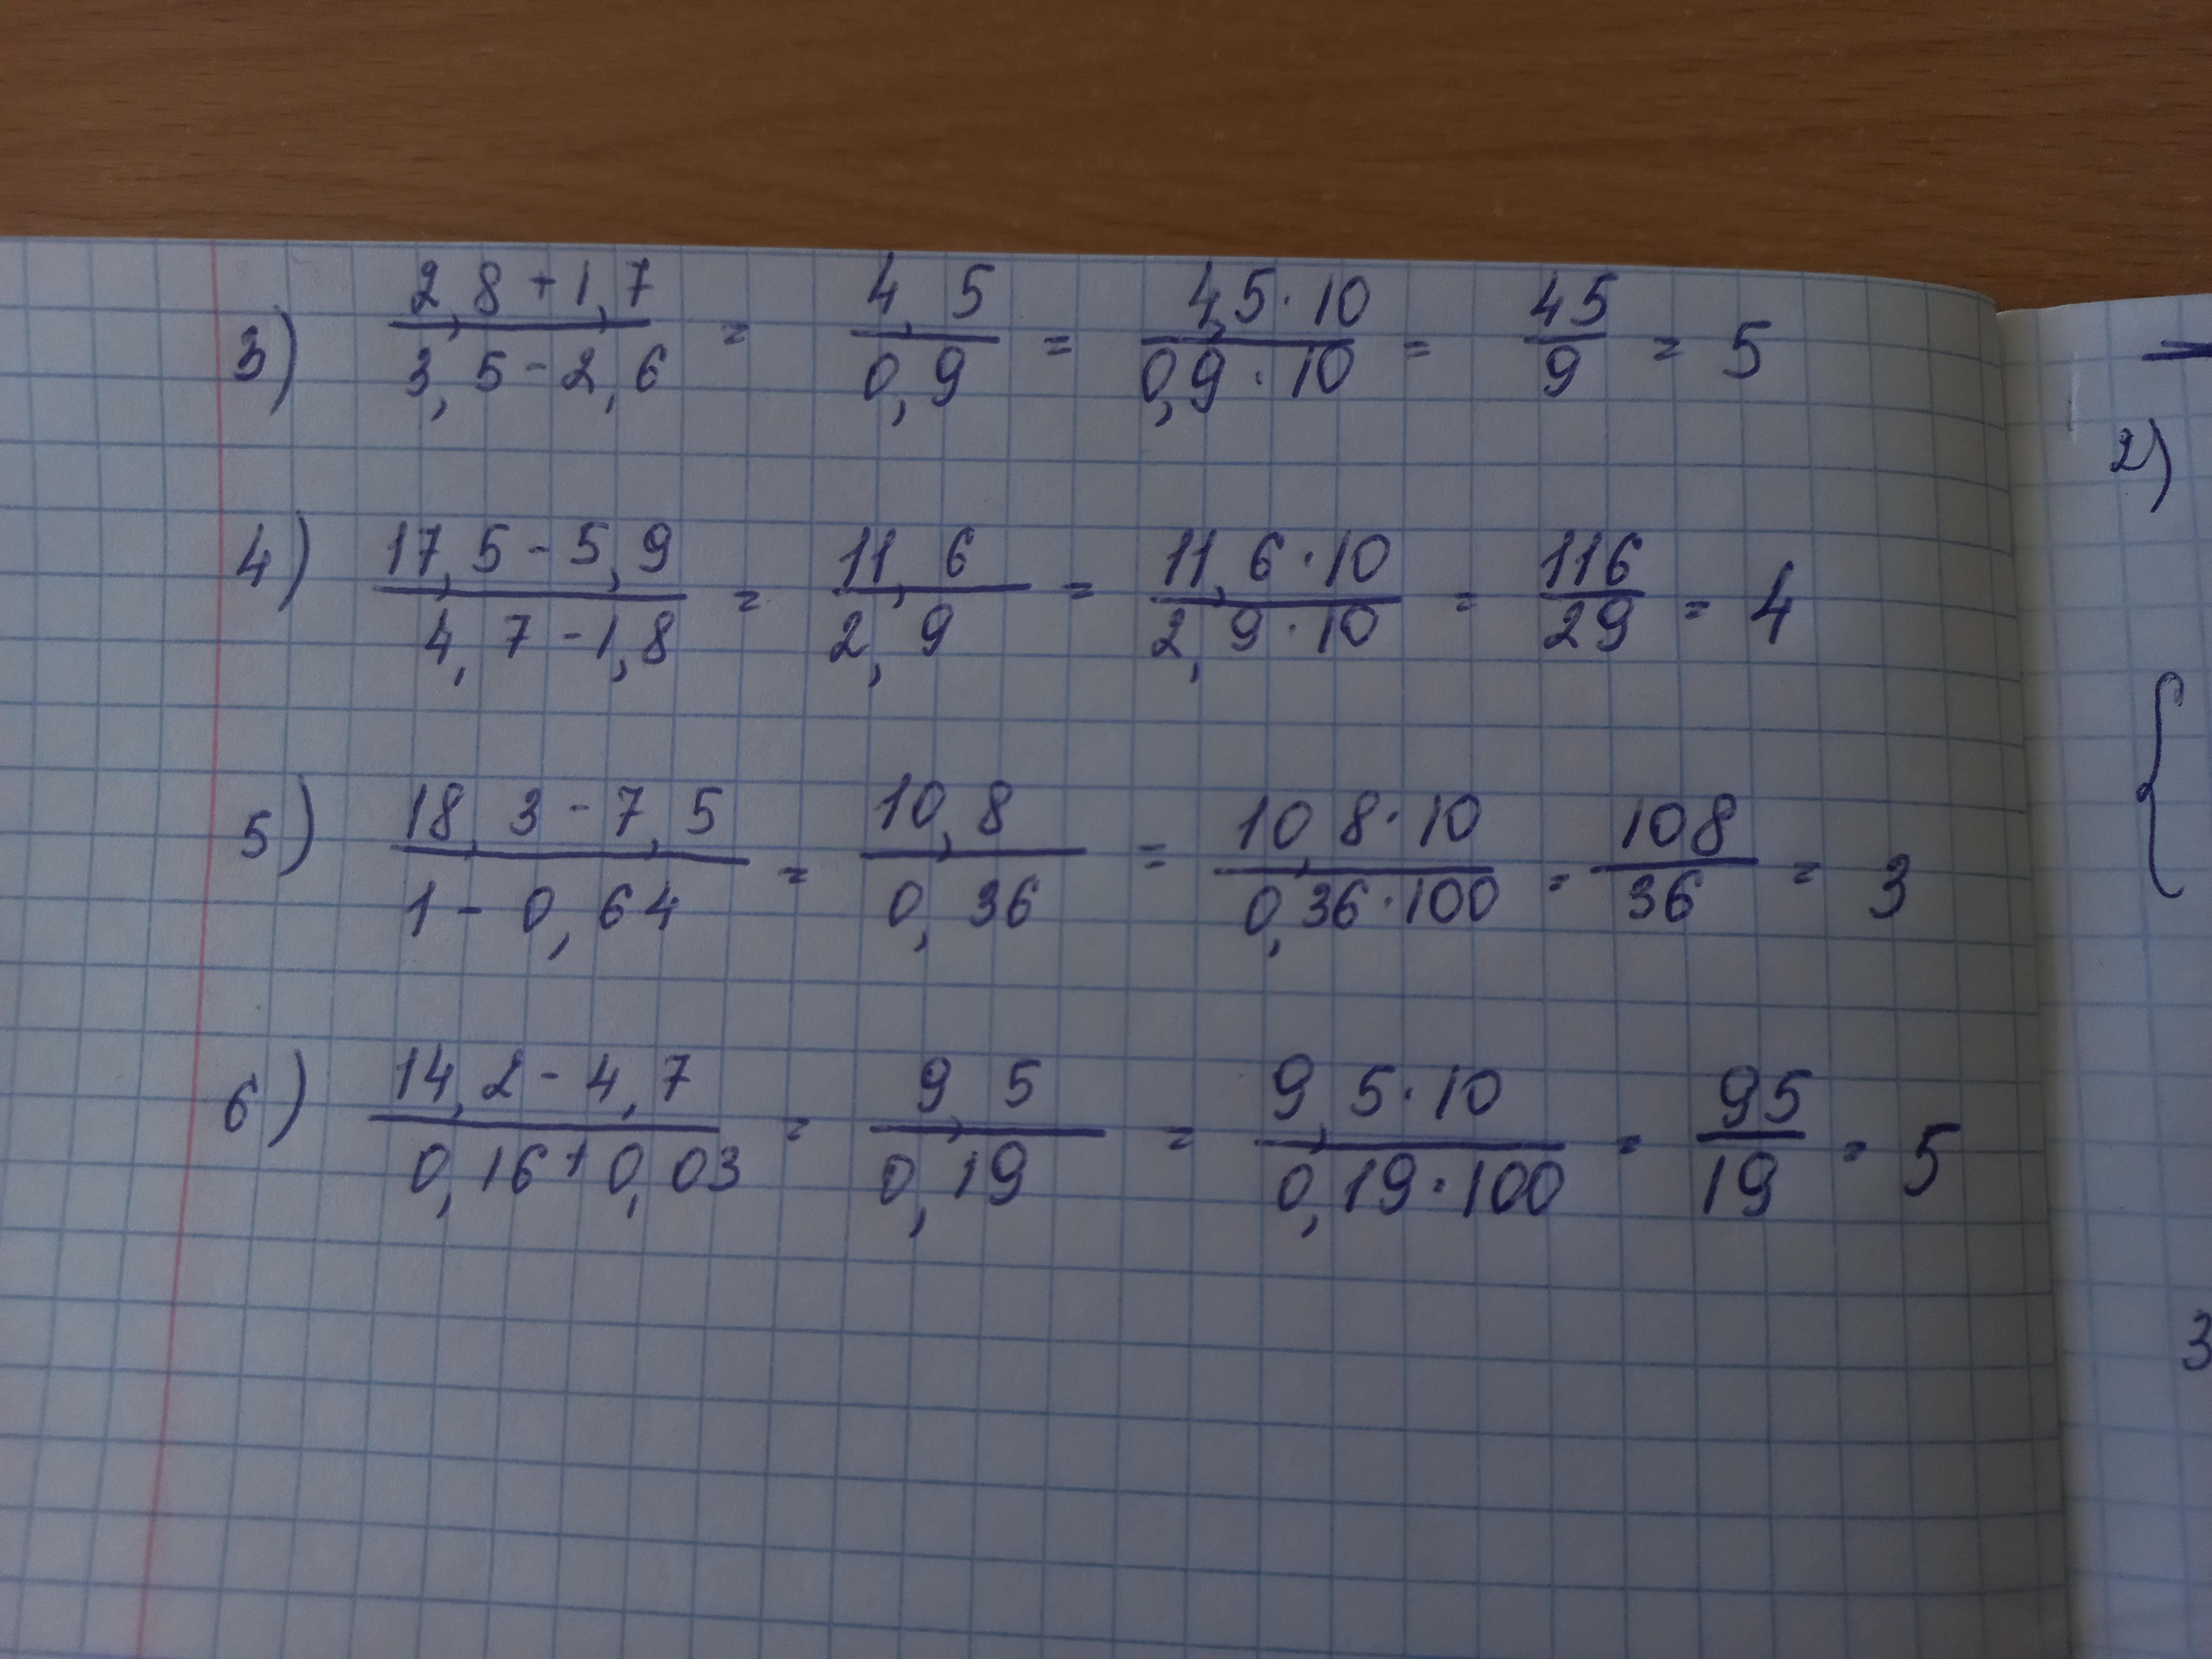 3) (2,8+1,7)/(3,5-2,6) = 4,5/0,9 = (4,5·10)/(0,9·10) = 45/9 = 5
2)
4) (17,5-5,9)/(4,7-1,8) = 11,6/2,9 = (11,6·10)/(2,9·10) = 116/29 = 4
{
5) (18,3-7,5)/(1-0,64) = 10,8/0,36 = (10,8·10)/(0,36·100) = 108/36 = 3
6) (14,2-4,7)/(0,16+0,03) = 9,5/0,19 = (9,5·10)/(0,19·100) = 95/19 = 5
3